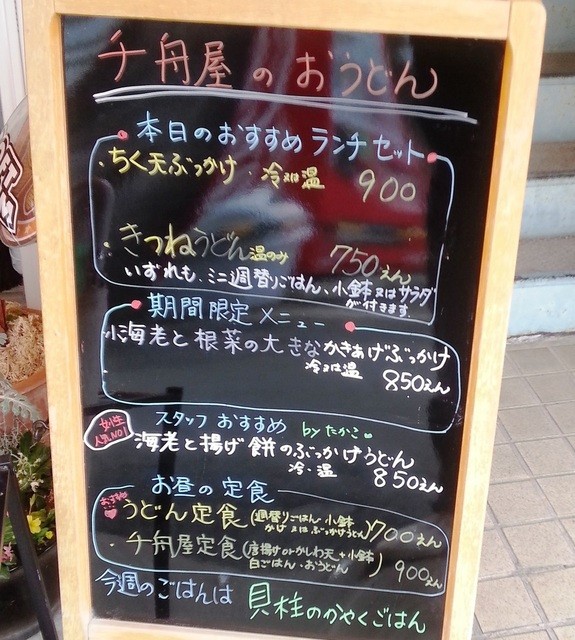 千舟屋のおうどん
本日のおすすめランチセット
・ちく天ぶっかけ 冷又は温 900
・きつねうどん 温のみ 750えん
いずれも、ミニ週替りごはん、小鉢又はサラダ
が付きます。
期間限定メニュー
小海老と根菜の大きなかきあげぶっかけ
冷又は温 850えん
女性
人気NO1
スタッフおすすめ byたかこ
海老と揚げ餅のぶっかけうどん
冷・温 850えん
お昼の定食
おすすめ
うどん定食(週替りごはん・小鉢 かけ又はぶっかけうどん)700えん
・千舟屋定食(唐揚げorかしわ天+小鉢 白ごはん・おうどん)900えん
今週のごはんは 貝柱のかやくごはん